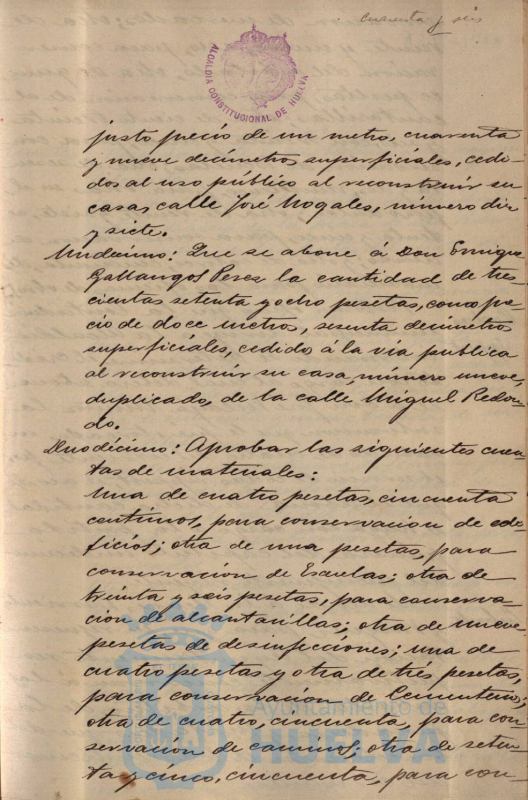 cuarenta y seis
ALCALDIA CONSTITUCIONAL DE HUELVA
justo precio de un metro, cuarenta
y nueve decímetros superficiales, cedi-
dos al uso público al reconstruir su
casa, calle José Nogales, número diez
y siete.
Undécimo: Que se abone á Don Enrique
Gallangos Perez la cantidad de tres-
cientas setenta y ocho pesetas, como pre-
cio de doce metros, sesenta decímetros
superficiales, cedido á la via publica
al reconstruir su casa, número nueve,
duplicado, de la calle Miguel Redon-
do.
Duodécimo: Aprobar las siguientes cuen-
tas de materiales:
Una de cuatro pesetas, cincuenta
centimos, para conservacion de edi-
ficios; otra de una pesetas, para
conservación de Escuelas; otra de
treinta y seis pesetas, para conserva-
ción de alcantarillas; otra de nueve
pesetas de desinfecciones; una de
cuatro pesetas y otra de trés pesetas,
para conservación de Cementerio;
otra de cuatro, cincuenta, para con
servación de caminos; otra de seten-
ta y cinco, cincuenta, para con-
Ayuntamiento de
HUELVA